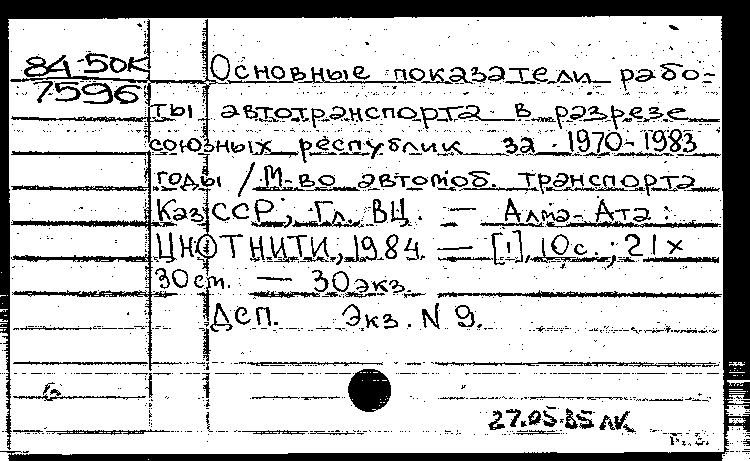 84-50К
7596
Основные показатели рабо-
ты автотранспорта в разрезе
союзных республик за 1970-1983
годы / М-во автомоб. транспорта
КазССР; Гл. ВЦ. — Алма-Ата:
ЦНОТНИТИ, 1984. — [1], 10с.; 21х
30cm. — 30экз.
Дсп. Экз. N 9.
б
27.05.85 ЛК